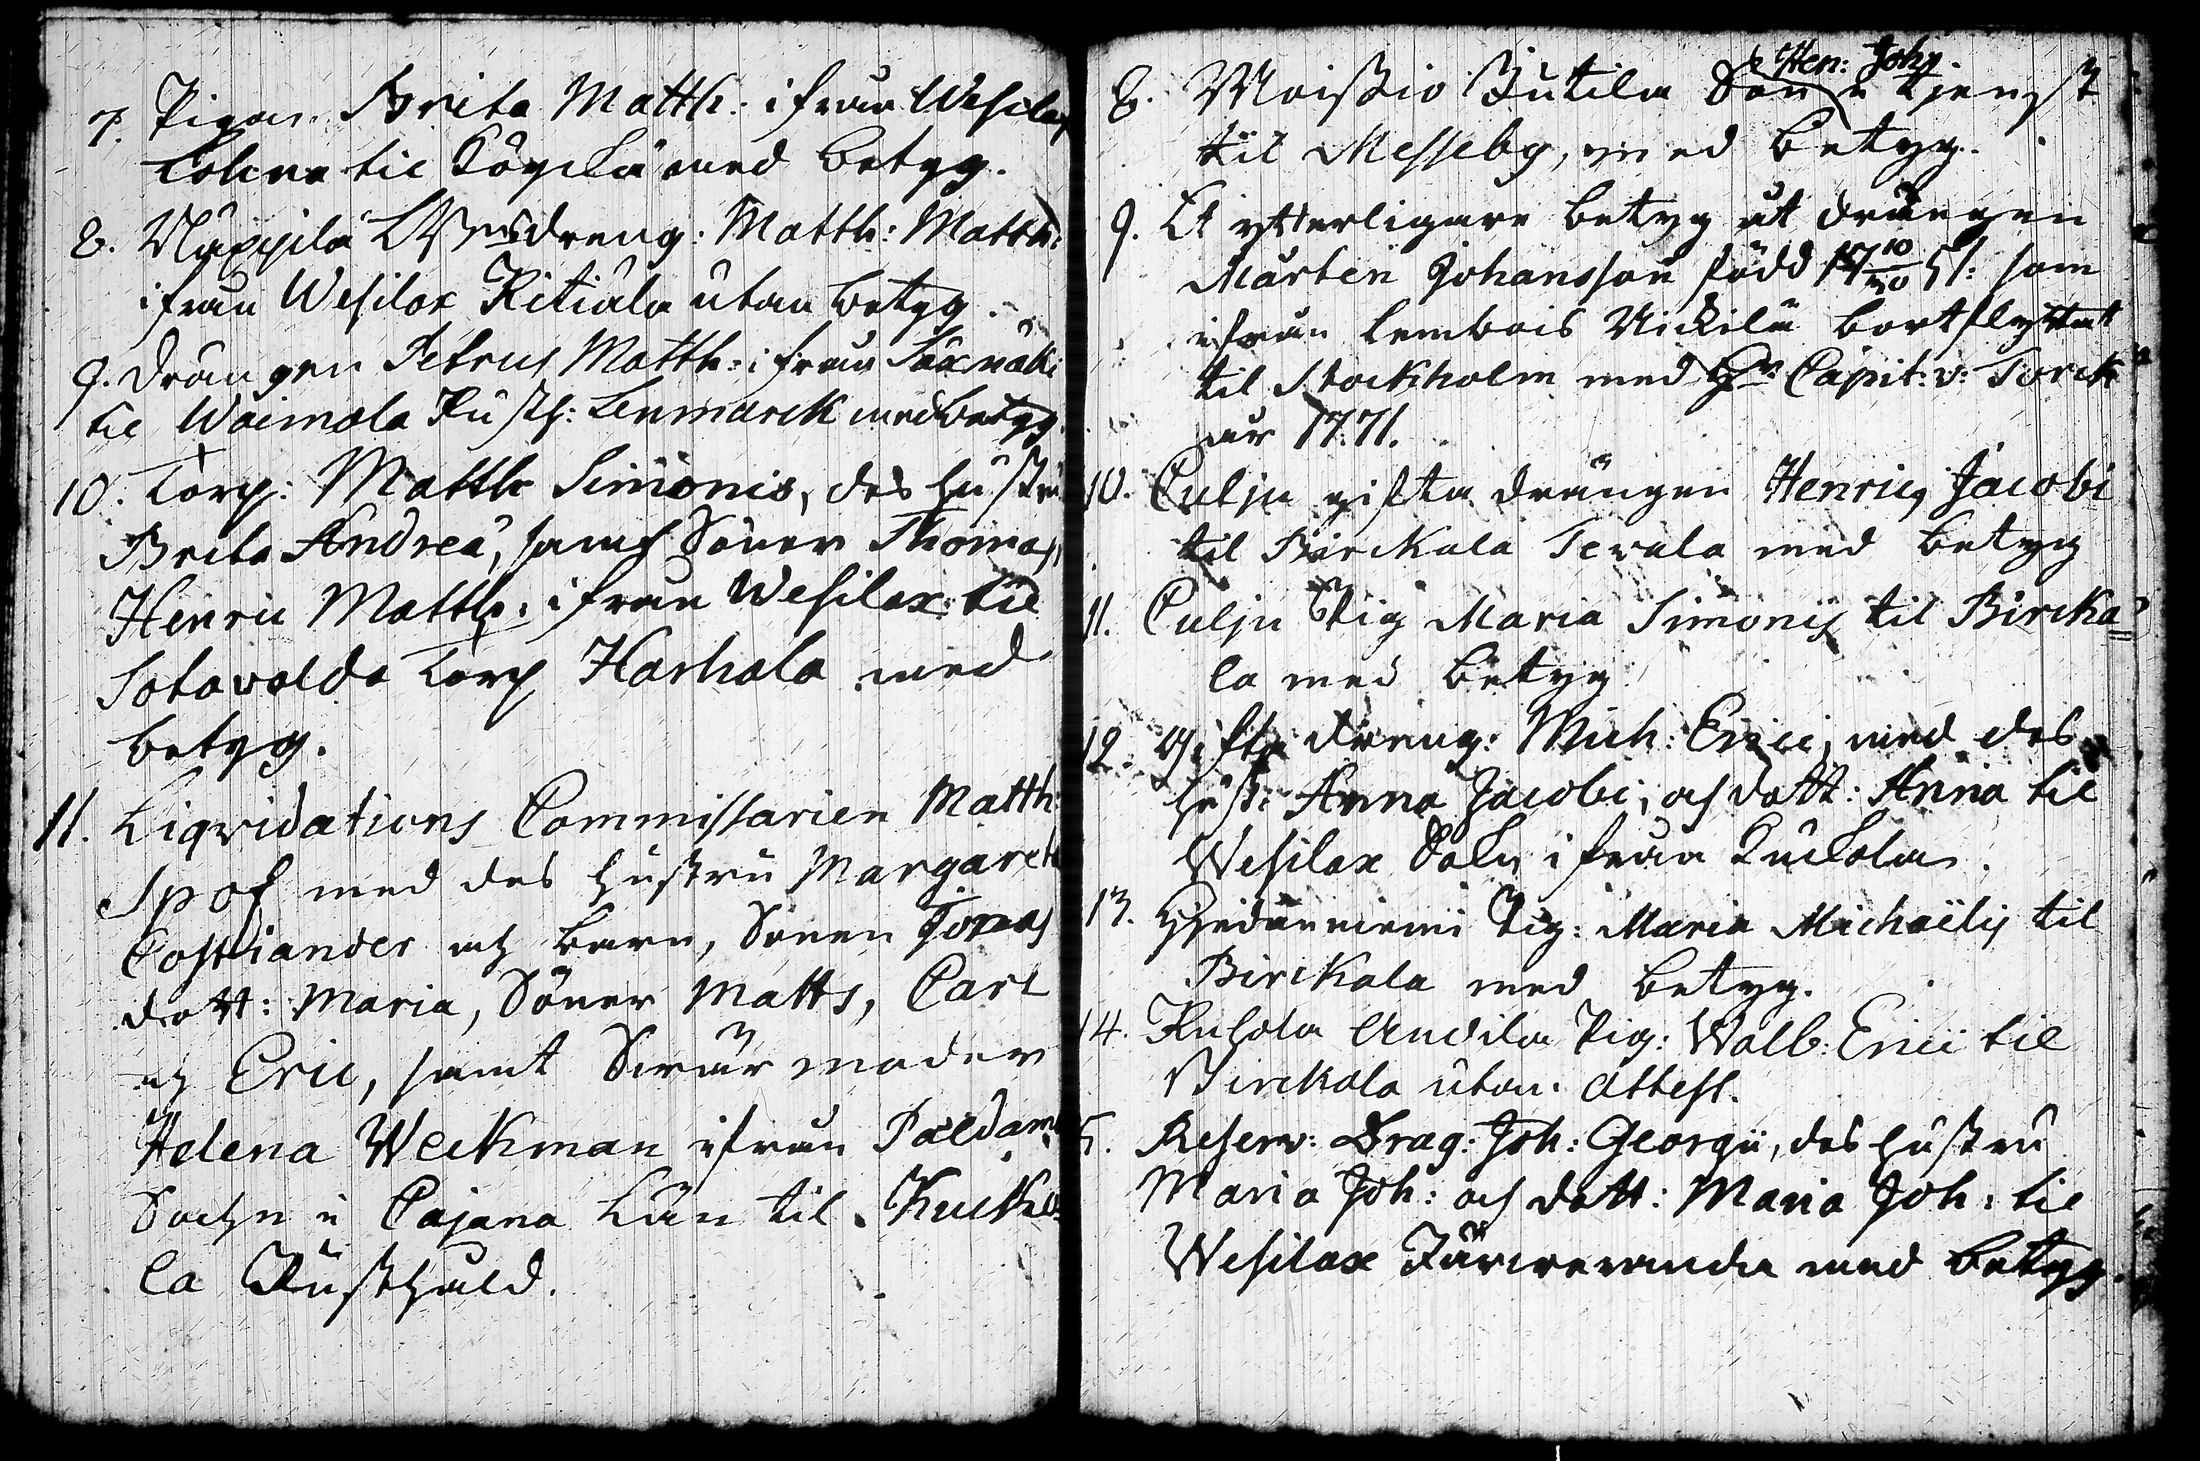 7. Pigan Brita Matth: ifrån Wesilax
til med betyg.
8. dreng: Matth: Matth:
ifrån Wesilax Kitiala utan betyg.
9. Drängen Petrus Matth: ifrån
til Waimala Rusth: Lenmarck med betyg.
10. Torp: Matth Simonis, des hustru
Brita Andreæ, samt Söner Thomas,
Henric Matth: ifrån Wesilax til
Sotavalda Torp Harhala med
betyg.
11. Liqvidations Commissarien Matth:
Spof med des hustru Margareta
Costiander och barn, Sonen Jonas
dott: Maria, Söner Matts, Carl
och Eric, samt Svärmoder
Helena Weckman ifrån Paldamo
Sochn i Cajana Län til Kucko-
la Rusthåld.
8. Moißio Jutila Son Hen: Joh: i tjenst
til Messuby, med betyg.
9. Et ytterligare betyg åt drängen
Mårten Johansson född 17 10/20 51: som
ifrån Lembois Nickilä bortflyttat
til Stockholm med Hr Capit: v: Torck
år 1771.
10. Culju gifta drängen Henric Jacobi
til Birckala med betyg
11. Culju Pig Maria Simonis til Birka=
la med betyg
12. Gifta dreng: Mich: Erici, med des
hust: Anna Jacobi, och dott: Anna til
Wesilax Sokn ifrån Kuckola.
13. Hjidänniemi Pig: Maria Michaëlis til
Birckala med betyg.
14. Pig: Walb: Erici til
Birckala utan attest.
15. Reserv: Drag: Joh: Georgii, des hustru
Maria Joh: och dott: Maria Joh: til
Wesilax med betyg.